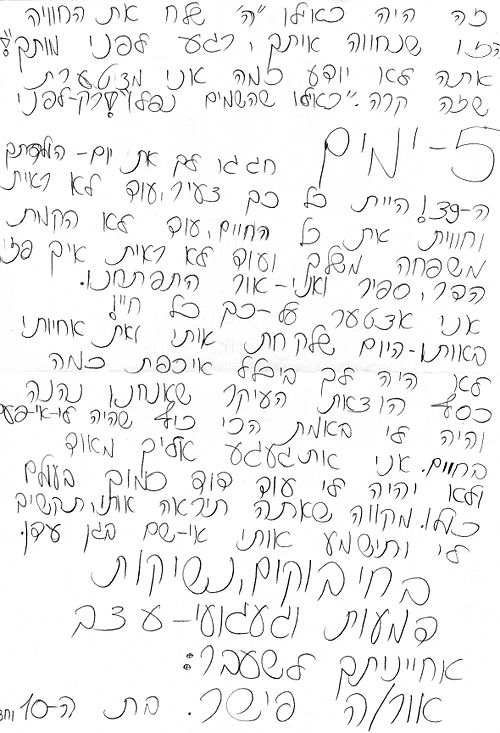 כזה היה כאילו "ה' שלח את החוויה
הזו שנחווה איתך, רגע לפני מותך"!
אתה לא יודע כמה אני מצטערת
שזה קרה. "כאילו שהשמים נפלו" רק-לפני
5-ימים חגגו לך את יום-הולדתך
ה-39! היית כל כך צעיר, עוד לא ראית
וחווית את כל החיים, עוד לא הקמת
משפחה משלך ועוד לא ראית איך
הדר, ספיר ואני-אור התפתחנו.
אני אצטער על-כך כל חיי!
באותו-היום שלקחת אותי ואת אחיותי
לא היה לך ביכלל איכפת כמה
כסף הוצאת העיקר שאנחנו נהנה
והיה לי באמת הכי כיף שהיה לי-אי-פעם
בחיים. אני אתגעגע אליך מאוד
ולא יהיה לי עוד דוד כמוך בעולם
כולו. מקווה שאתה תיראה אותי, תקשיב
לי ותישמע אותי אי-שם בגן עדן.
בחיבוקים, נשיקות
דמעות וגעגועי-עצב
אחייניתך לשעבר:
אור/ה פישר. בת ה-10 וחצי